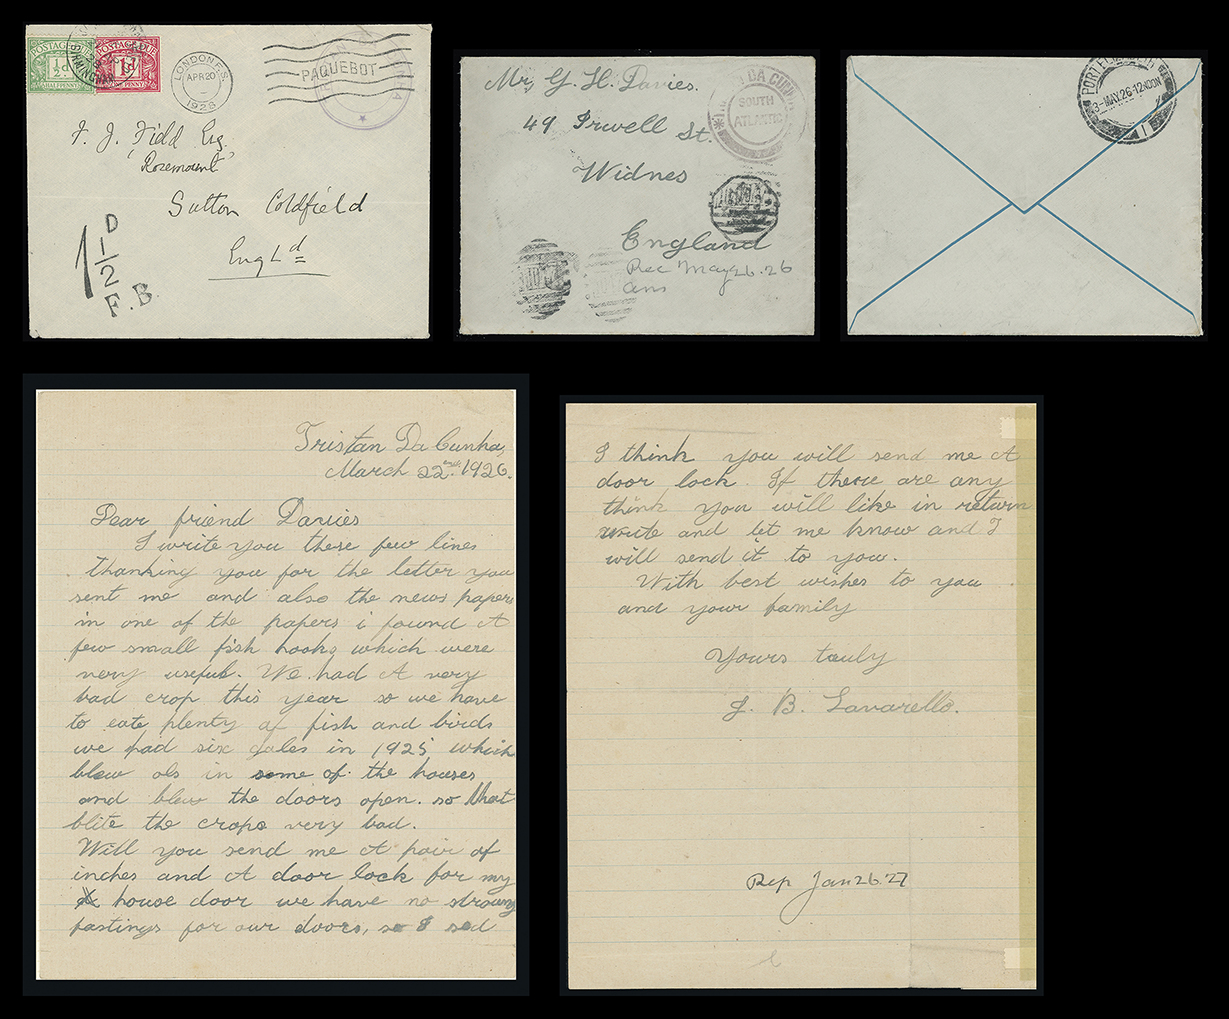 POSTAGE DUE
½d
HALFPENNY
POSTAGE DUE
1d
ONE PENNY
BIRMINGHAM
LONDON F.S.
APR 20
1926
PAQUEBOT
F. J. Field Esq.
"Rosemount"
Sutton Coldfield
Engld
1½D
F.B.
Mr G. H. Davies.
49 Irwell St.
Widnes
England
Rec May 26.26
Ans
DA CUNHA
SOUTH
ATLANTIC
PORT ELIZABETH
3-MAY.26-12NOON
1
Tristan Da Cunha,
March 22nd 1926.
Dear friend Davies
I write you these few lines
thanking you for the letter you
sent me and also the news papers
in one of the papers i found A
few small fish hooks which were
very useful. We had A very
bad crop this year so we have
to eate plenty of fish and birds
we had six gales in 1925 which
blew ols in some of the houses
and blew the doors open. so that
blite the crops very bad.
Will you send me A pair of
inches and A door lock for my
house door we have no strong
fastings for our doors, so I sed
I think you will send me A
door lock. If there are any
think you will like in return
write and let me know and I
will send it to you.
With best wishes to you
and your family
Yours tauly
J. B. Lavarello.
Rep Jan 26.27